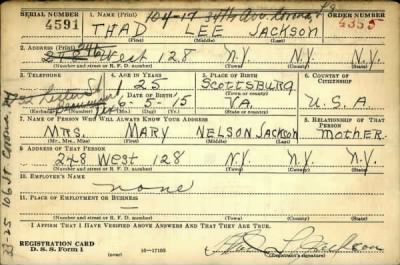 SERIAL NUMBER
1. NAME (Print)
ORDER NUMBER
4591
THAD LEE JACKSON
4355
(First) (Middle) (Last)
2. ADDRESS (Print)
248 West 128 N.Y. N.Y.
(Number and street or R. F. D. number) (Town) (County) (State)
3. TELEPHONE
4. AGE IN YEARS
5. PLACE OF BIRTH
6. COUNTRY OF CITIZENSHIP
25
SCOTTSBURG
DATE OF BIRTH
(Town or county)
6-5-15
VA.
U.S.A.
(Exchange) (No.)
(Mo.) (Day) (Yr.)
(State or country)
7. NAME OF PERSON WHO WILL ALWAYS KNOW YOUR ADDRESS
8. RELATIONSHIP OF THAT PERSON
MRS. MARY NELSON JACKSON
MOTHER
(Mr., Mrs., Miss) (First) (Middle) (Last)
9. ADDRESS OF THAT PERSON
248 West 128 N.Y. N.Y. N.Y.
(Number and street or R. F. D. number) (Town) (County) (State)
10. EMPLOYER'S NAME
none
11. PLACE OF EMPLOYMENT OR BUSINESS
(Number and street or R. F. D. number) (Town) (County) (State)
I AFFIRM THAT I HAVE VERIFIED ABOVE ANSWERS AND THAT THEY ARE TRUE.
REGISTRATION CARD
D. S. S. Form 1
(over)
16—17105
(Registrant's signature)
33-25 106 St Corona